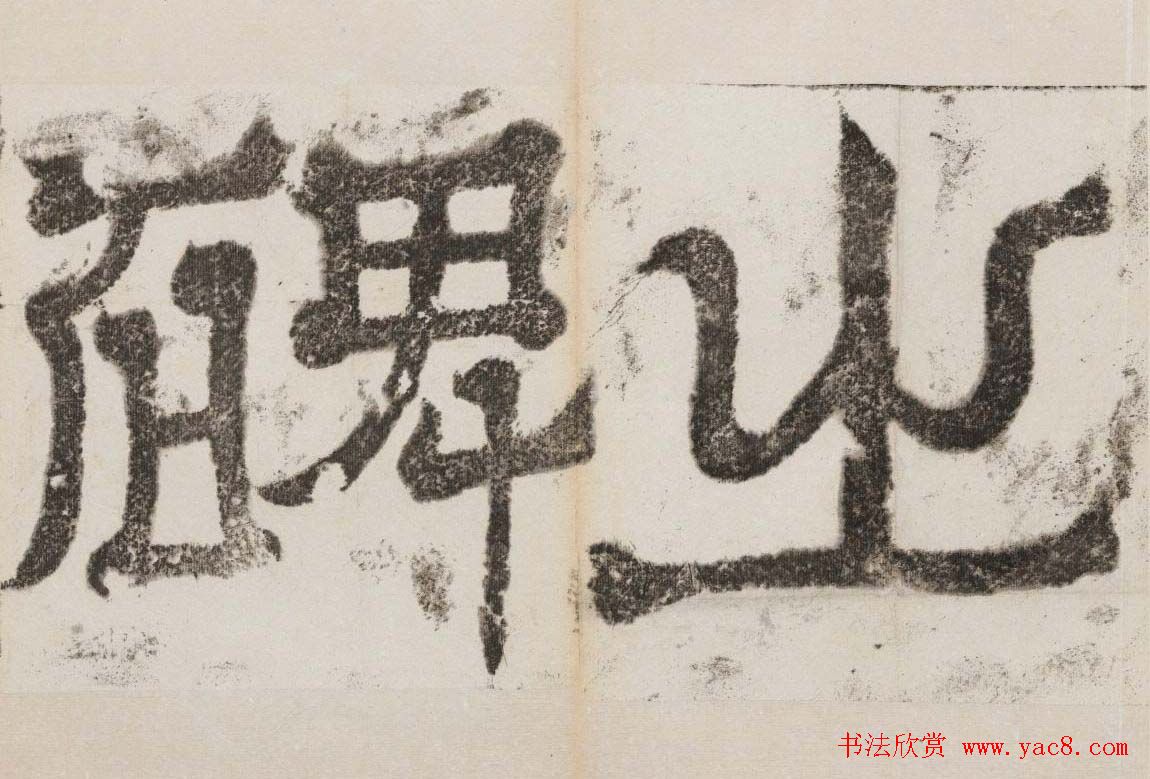 之碑
书法欣赏 www.yac8.com